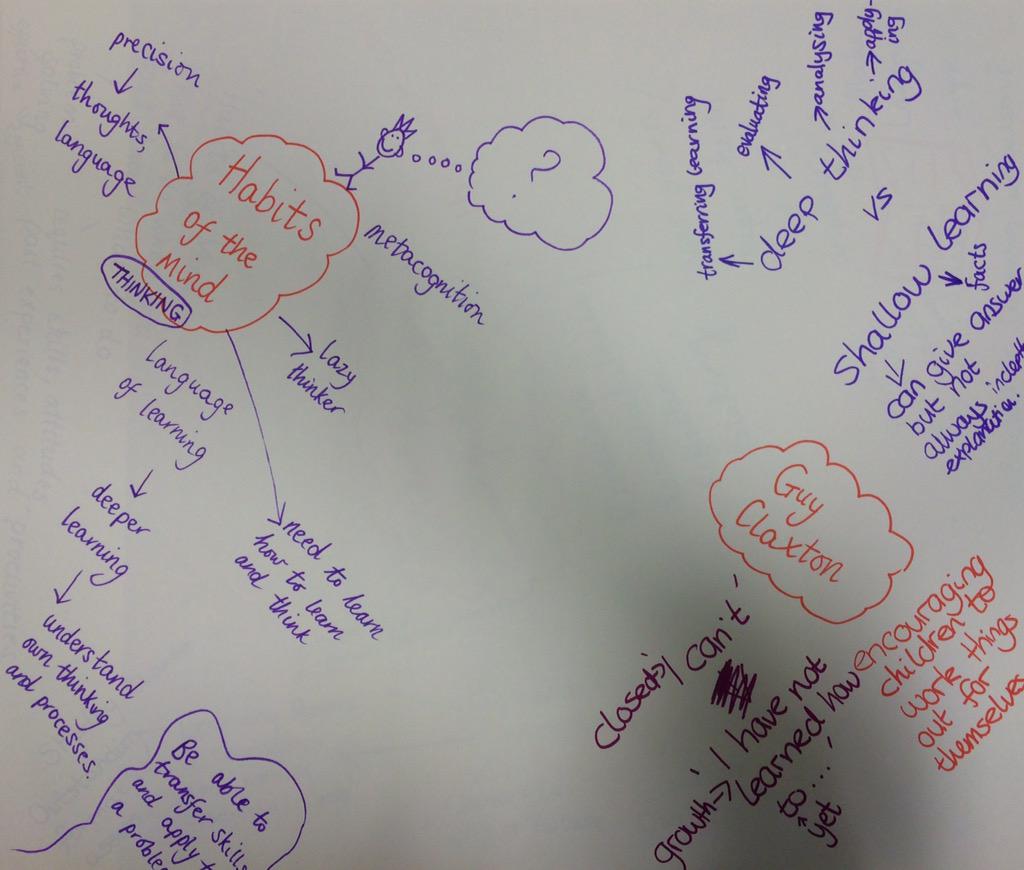 precision
thoughts,
language
Habits
of the
Mind
THINKING
?
metacognition
lazy
thinker
language
of learning
deeper
learning
understand
own thinking
and processes.
need to learn
how to learn
and think
Be able to
transfer skills
and apply
a problem
transferring learning
evaluating
analysing
apply-
ing
deep thinking
vs
Shallow learning
facts
can give answer
but not
always indepth
explanation.
Guy
Claxton
encouraging
children to
work things
out for
themselves
closed 'I can't'
growth 'I have not
learned how
to....'
yet